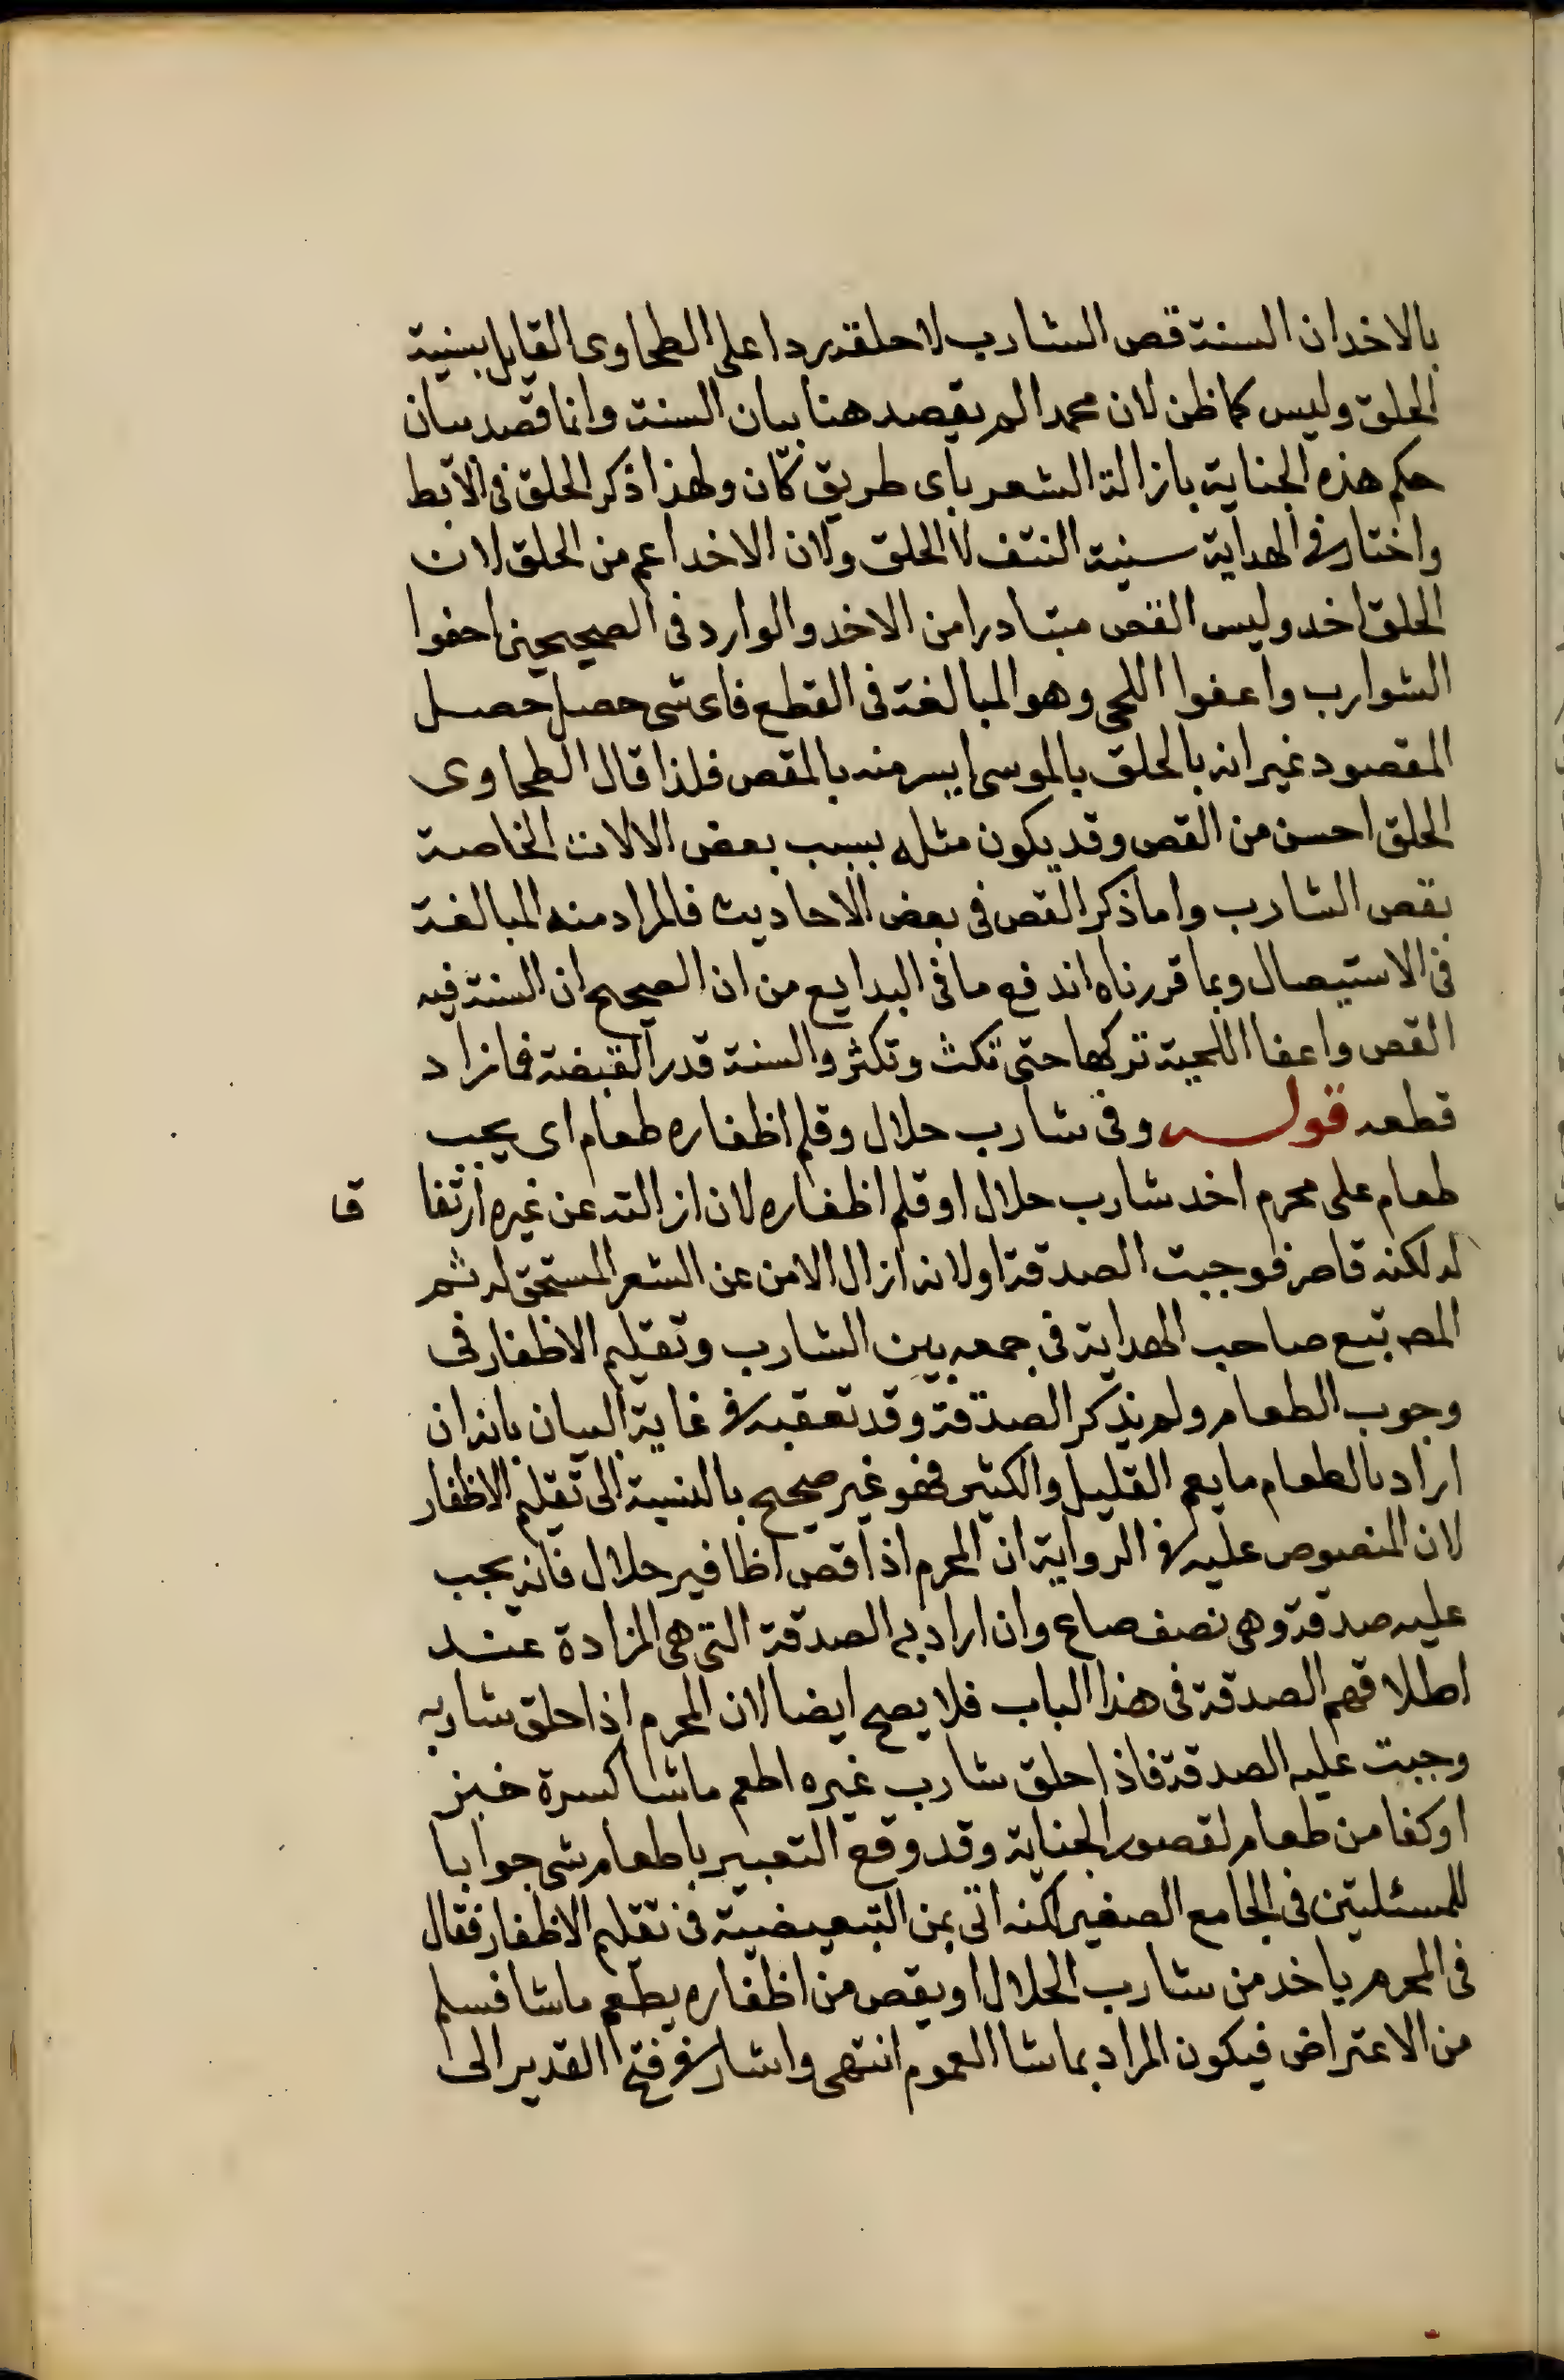 بالاخذ ان السنة قص الشارب لا حلقه ردا على الطحاوى القايل بسنية
الحلق وليس كما ظن لان محمدا لم يقصد هنا بيان السنة وانما قصد بيان
حكم هذه الجناية بازالة الشعر باى طريق كان ولهذا ذكر الحلق فى الابط
واختار فى الهداية سنية النتف لا الحلق ولان الاخد اعم من الحلق لان
الحلق اخد وليس القص متبادرا من الاخد والوارد فى الصحيحين احفوا
الشوارب واعفوا اللحى وهو المبالغة فى القطع فاى شى حصل حصل
المقصود غير انه بالحلق بالموسى ايسر منه بالمقص فلذا قال الطحاوى
الحلق احسن من القص وقد يكون مثله بسبب بعض الالات الخاصة
بقص الشارب واما ذكر القص فى بعض الاحاديث فالمراد منه المبالغة
فى الاستيصال وبما قررناه اندفع ما فى البدايع من ان الصحيح ان السنة فيه
القص واعفا اللحية تركها حتى تكث وتكثر والسنة قدر القبضة فما زاد
قطعه قوله وفى شارب حلال وقلم اظفاره طعام اى يجب
طعام على محرم اخد شارب حلال او قلم اظفاره لان ازالته عن غيره ارتفا قا
له لكنه قاصر فوجبت الصدقة او لانه ازال الامن عن الشعر المستحق له ثم
المصـ تبع صاحب الهداية فى جمعه بين الشارب وتقليم الاظفار فى
وجوب الطعام ولم يذكر الصدقة وقد تعقبه فى غاية البيان بانه ان
اراد بالطعام ما يعم القليل والكثير فهو غير صحيح بالنسبة الى تقليم الاظفار
لان المنصوص عليه فى الرواية ان المحرم اذا قص اظافير حلال فانه يجب
عليه صدقة وهى نصف صاع وان اراد به الصدقة التى هى المرادة عند
اطلاقهم الصدقة فى هذا الباب فلا يصح ايضا لان المحرم اذا حلق شاربه
وجبت عليه الصدقة فاذا حلق شارب غيره اطعم ماشا كسرة خبز
او كفا من طعام لقصور الجناية وقد وقع التعبير باطعام شى جوابا
للمسئلتين فى الجامع الصغير لكنه اتى بمن التبعيضية فى تقليم الاظفار فقال
فى المحرم ياخد من شارب الحلال او يقص من اظفاره يطعم ماشا فسلم
من الاعتراض فيكون المراد بماشا العموم انتهى واشار فى فتح القدير الى